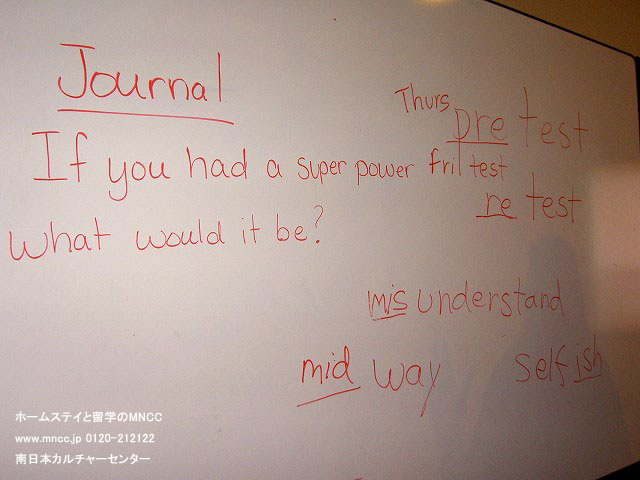 Journal
If you had a super power
what would it be?
Thurs pre test
fri test
re test
misunderstand
mid way
selfish
ホームステイと留学のMNCC
www.mncc.jp 0120-212122
南日本カルチャーセンター